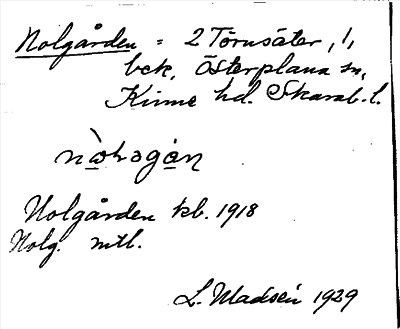 Nolgården = 2 Törnsäter, 1/1
bck, Österplana sn,
Kinne hd. Skarab. l.
Nolgården kb. 1918
Nolg. mtl.
L. Madsén 1929